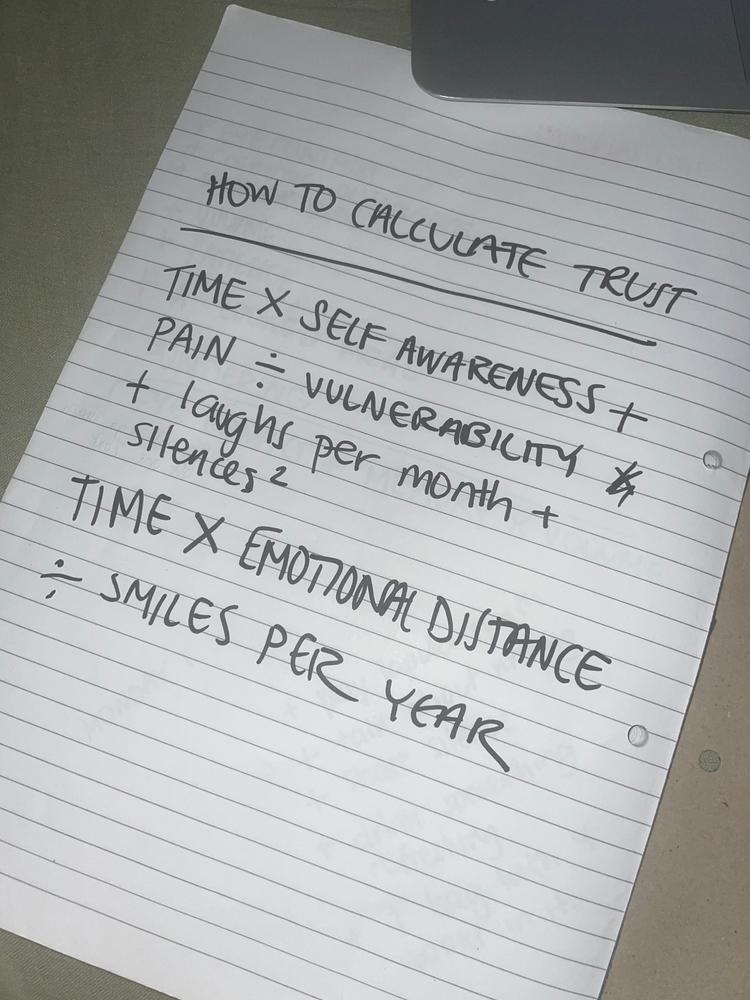 HOW TO CALCULATE TRUST
TIME X SELF AWARENESS +
PAIN ÷ VULNERABILITY
+ laughs per month +
silences²
TIME X EMOTIONAL DISTANCE
÷ SMILES PER YEAR